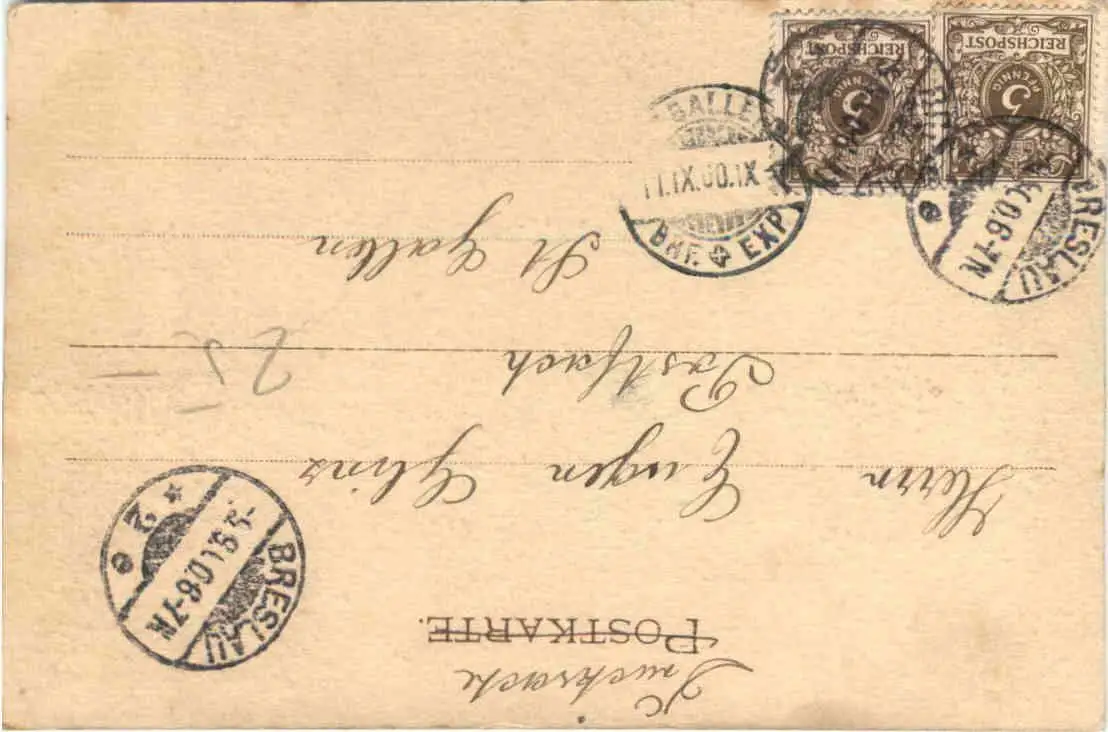 Drucksache
POSTKARTE.
Herrn
Eugen
Postfach
St Gallen
25
BRESLAU
* 2 e
6-7N.
BRESLAU
e
6-7N.
GALLE
11.IX.00.IX
BRF. EXP
REICHSPOST
3
PFENNIG
REICHSPOST
3
PFENNIG